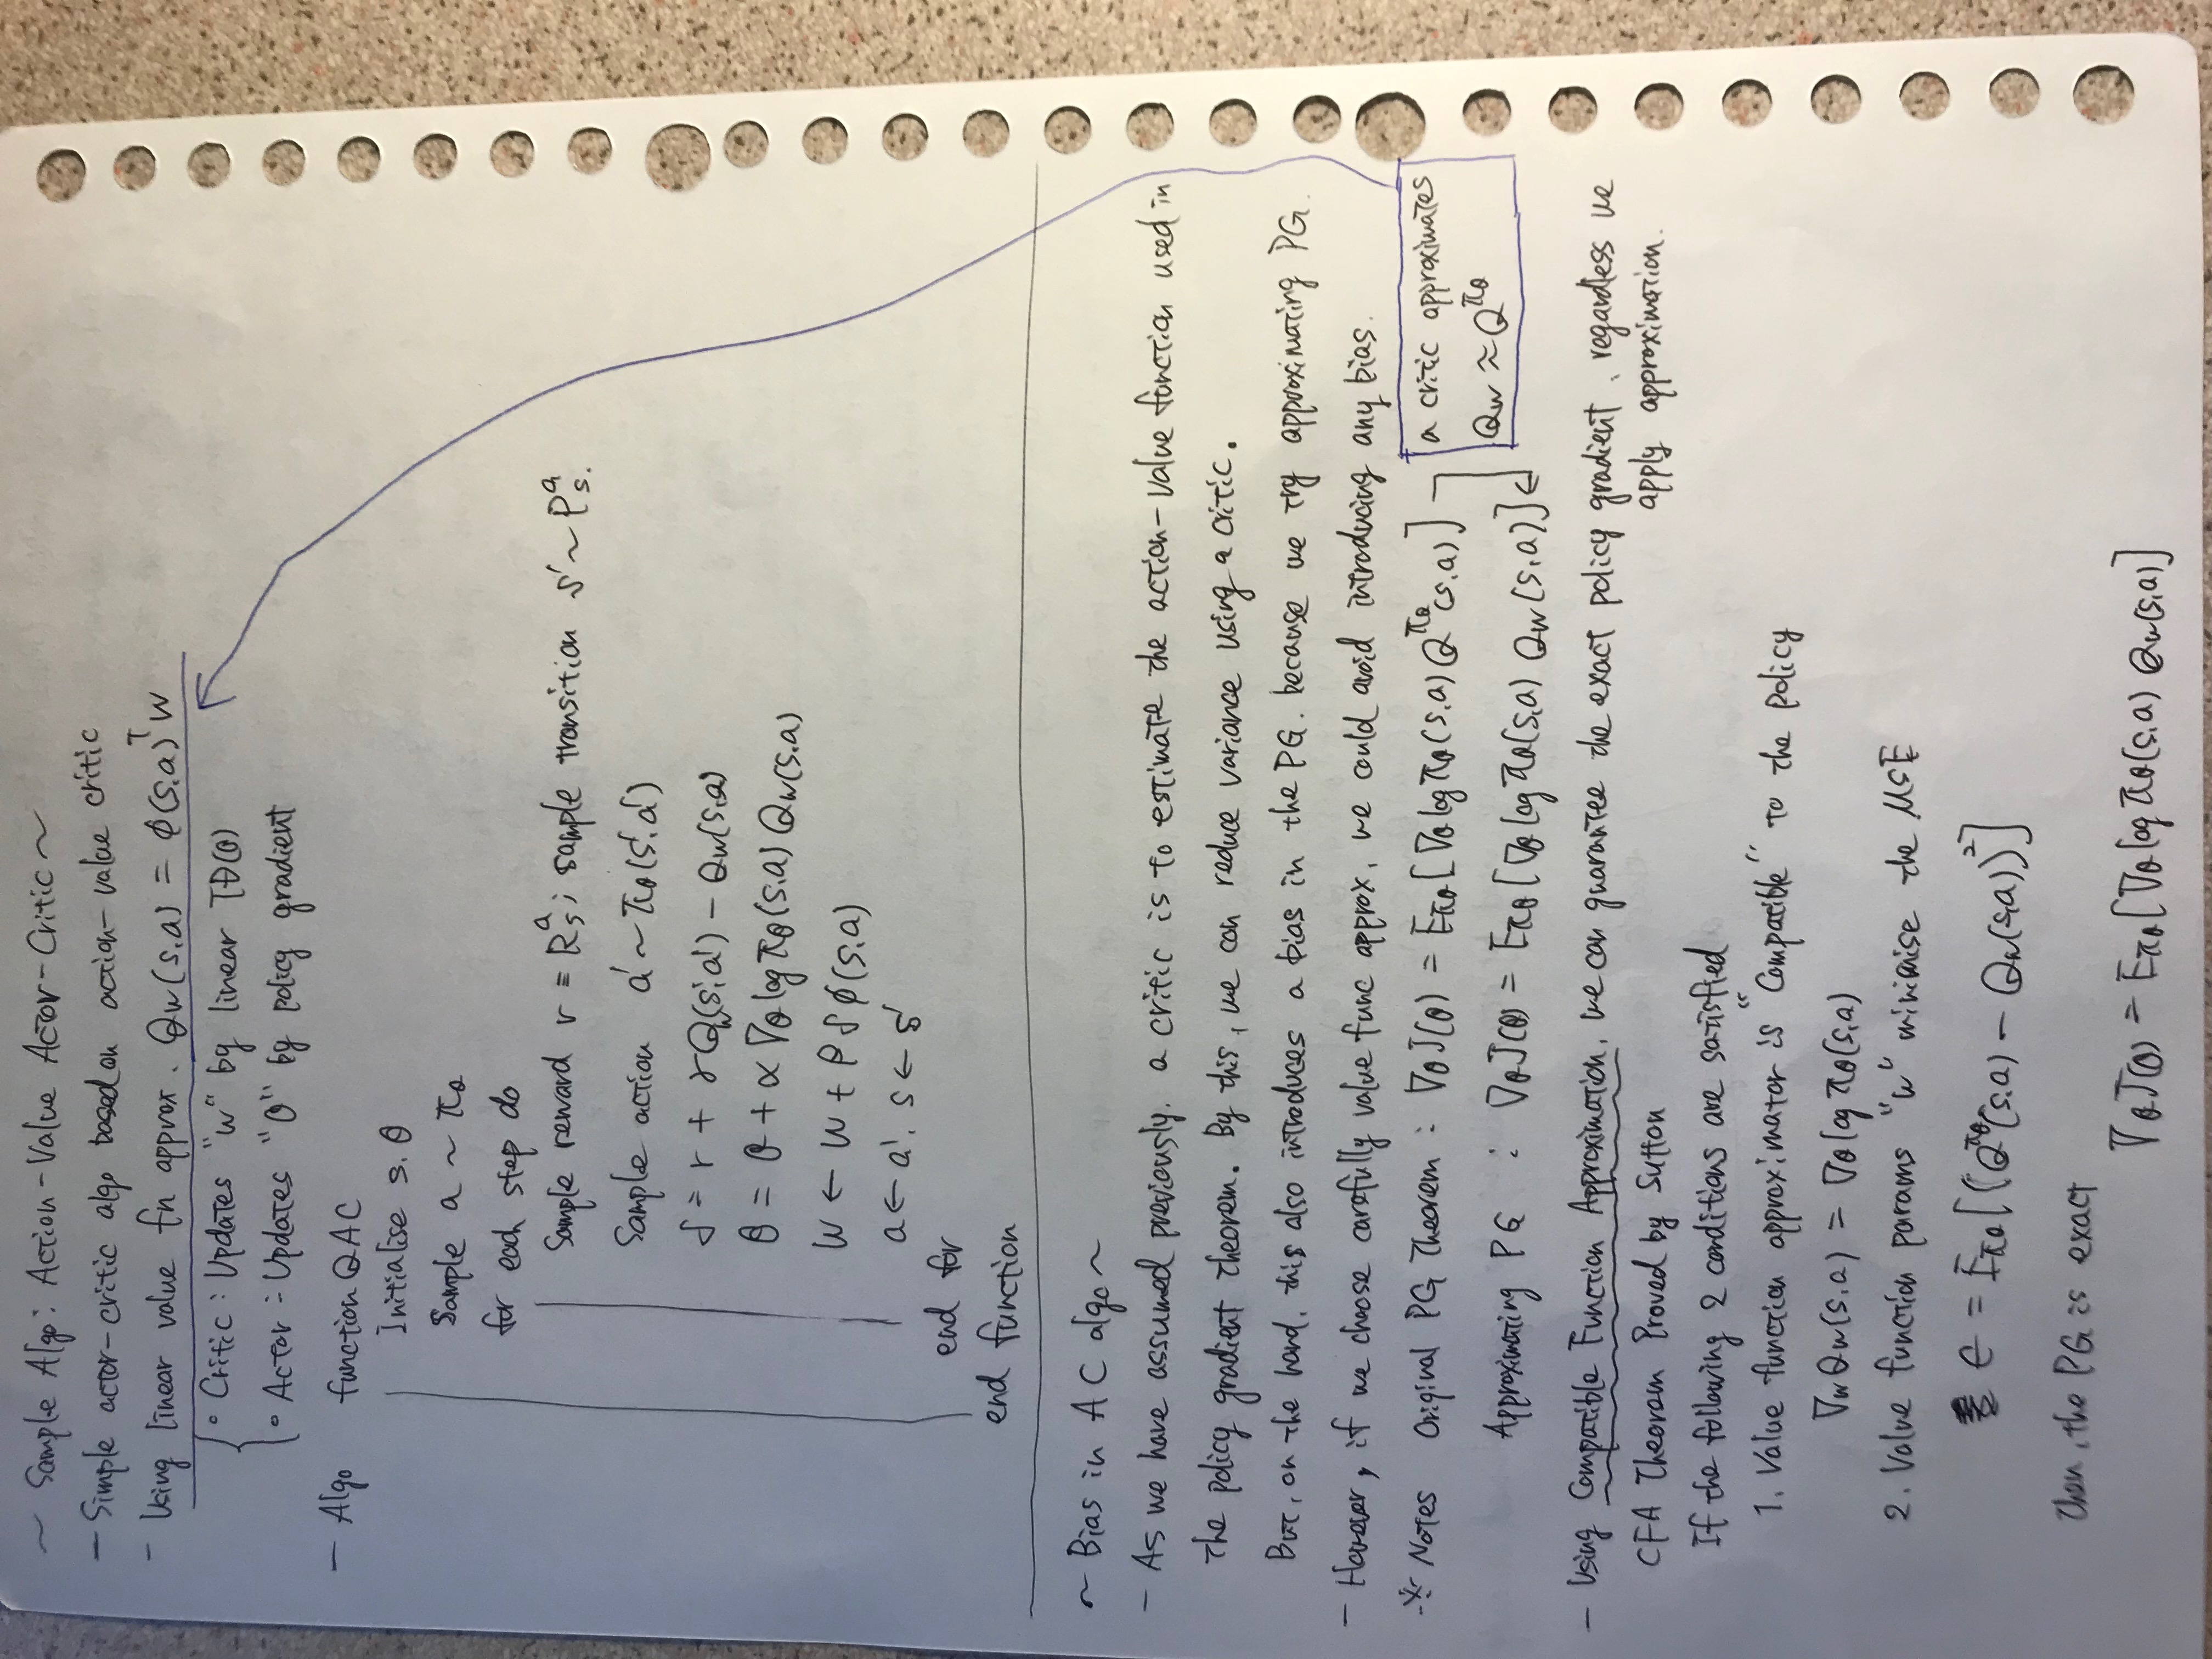 ~ Sample Algo: Action-Value Actor-Critic ~
- Simple actor-critic algo based on action-value critic
- Using linear value fn approx. Qw(s,a) = φ(s,a)ᵀw
∘ Critic : Updates "w" by linear TD(0)
∘ Actor : Updates "θ" by policy gradient
- Algo function QAC
Initialise s, θ
Sample a ~ πθ
for each step do
Sample reward r = Rₛᵃ; sample transition s' ~ Pₛᵃ.
Sample action a' ~ πθ(s',a')
δ = r + γQw(s',a') - Qw(s,a)
θ = θ + α ∇θ log πθ(s,a) Qw(s,a)
w ← w + β δ φ(s,a)
a ← a', s ← s'
end for
end function
~ Bias in AC algo ~
- As we have assumed previously, a critic is to estimate the action-value function used in
the policy gradient theorem. By this, we can reduce variance using a critic.
But, on the hand, this also introduces a bias in the PG, because we try approximating PG.
- However, if we choose carefully value func approx, we could avoid introducing any bias.
※ Notes Original PG Theorem : ∇θJ(θ) = Eπθ[∇θ log πθ(s,a) Q^πθ(s,a)]
a critic approximates
Qw ≈ Q^πθ
Approximating PG : ∇θJ(θ) = Eπθ[∇θ log πθ(s,a) Qw(s,a)]
- Using Compatible Function Approximation, we can guarantee the exact policy gradient, regardless we
apply approximation.
CFA Theorem Proved by Sutton
If the following 2 conditions are satisfied
1. Value function approximator is "Compatible" to the policy
∇wQw(s,a) = ∇θ log πθ(s,a)
2. Value function params "w" minimise the MSE
ϵ = Eπθ[(Q^πθ(s,a) - Qw(s,a))²]
Then, the PG is exact
∇θJ(θ) = Eπθ[∇θ log πθ(s,a) Qw(s,a)]